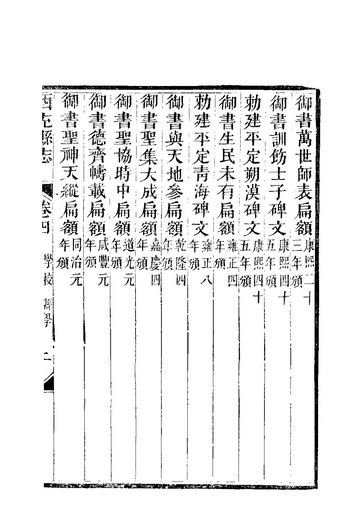 御書萬世師表扁額康熙二十三年頒
御書訓飭士子碑文康熙四十五年頒
勅建平定朔漠碑文康熙四十五年頒
御書生民未有扁額雍正四年頒
勅建平定青海碑文雍正八年頒
御書與天地參扁額乾隆四年頒
御書聖集大成扁額嘉慶四年頒
御書聖協時中扁額道光元年頒
御書德齊幬載扁額咸豐元年頒
御書聖神天縱扁額同治元年頒
西充縣志 卷四 學校